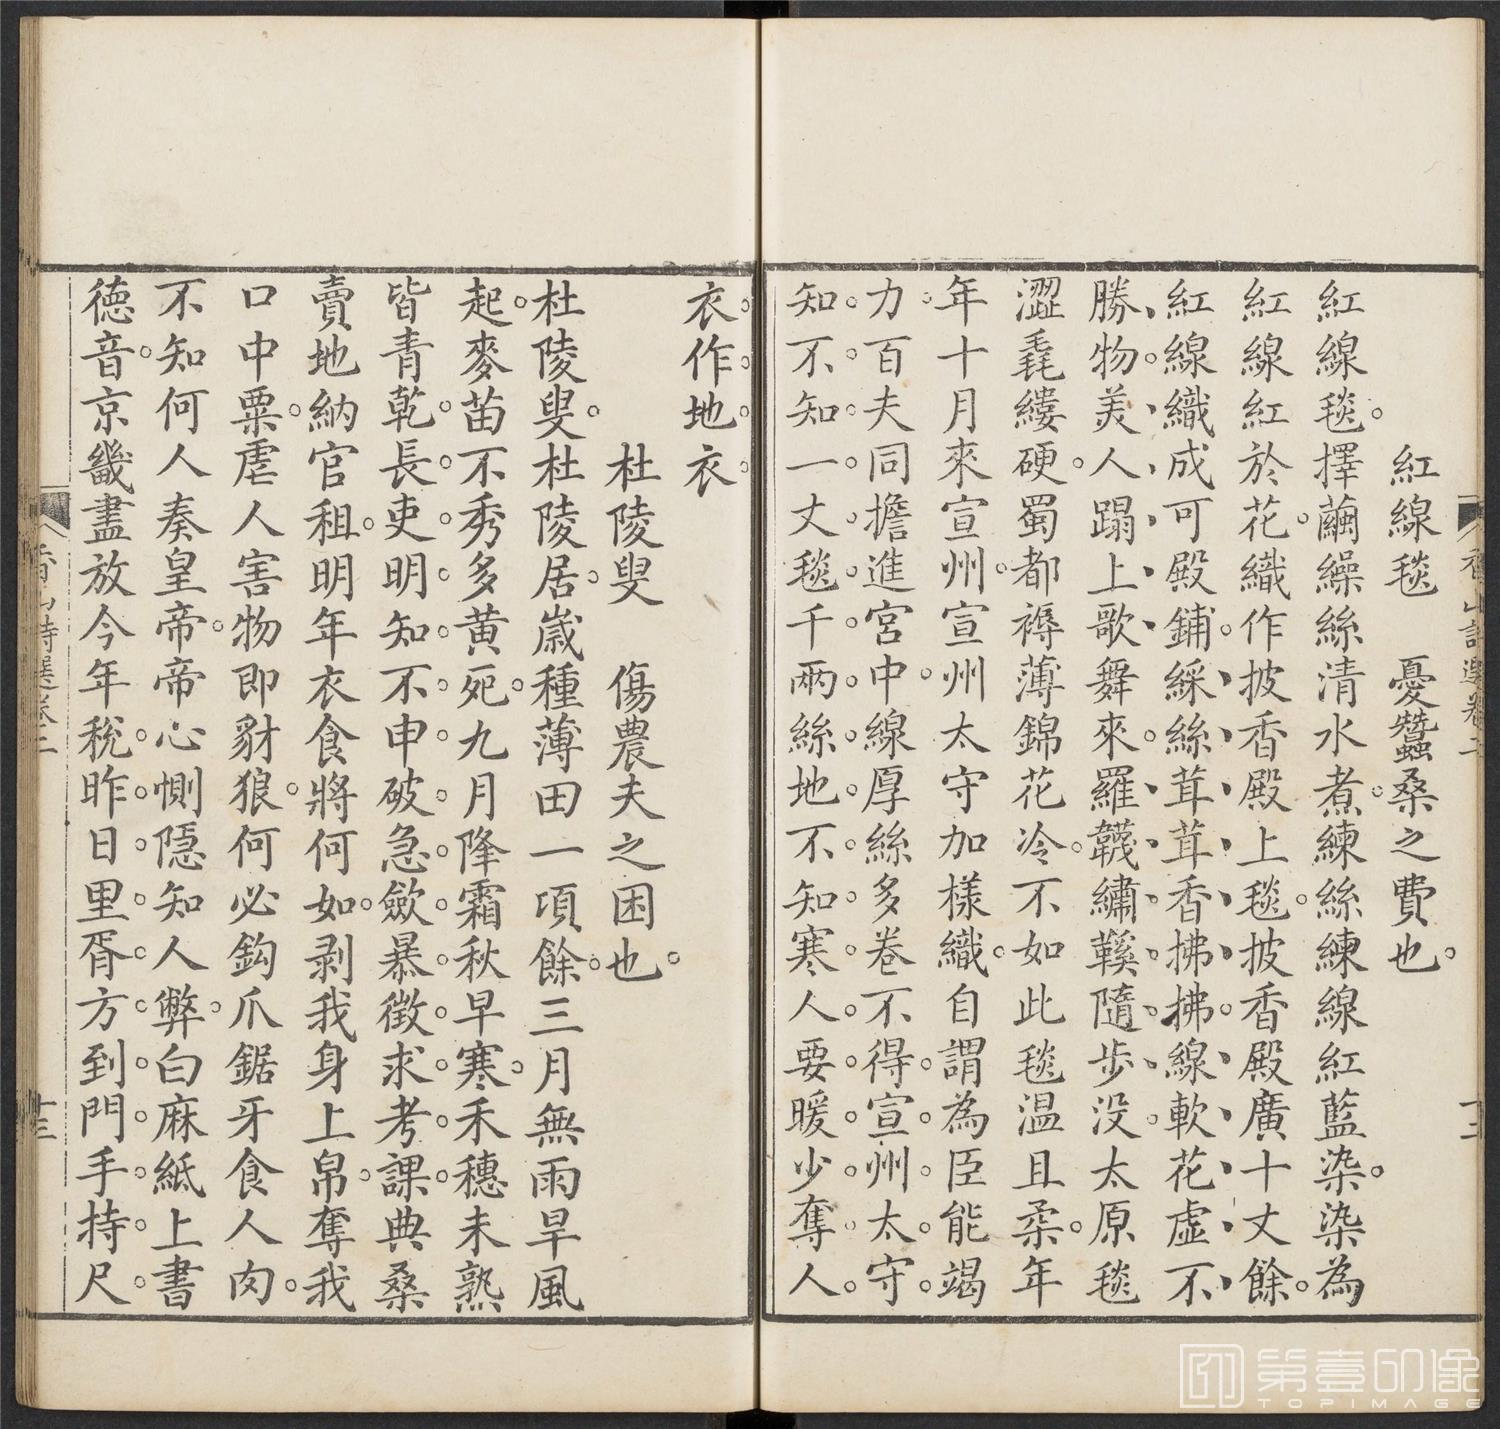 紅線毯　憂蠶桑之費也
紅線毯擇繭繰絲清水煮練絲練線紅藍染染為
紅線紅於花織作披香殿上毯披香殿廣十丈餘
紅線織成可殿鋪綵絲茸茸香拂拂線軟花虛不
勝物美人蹋上歌舞來羅韈繡鞵隨步没太原毯
澀毳縷硬蜀都褥薄錦花冷不如此毯温且柔年
年十月來宣州宣州太守加樣織自謂為臣能竭
力百夫同擔進宮中線厚絲多卷不得宣州太守
知不知一丈毯千兩絲地不知寒人要暖少奪人
香山詩選卷二
十二
衣作地衣
杜陵叟　傷農夫之困也
杜陵叟杜陵居歲種薄田一項餘三月無雨旱風
起麥苗不秀多黄死九月降霜秋早寒禾穗未熟
皆青乾長吏明知不申破急斂暴徵求考課典桑
賣地納官租明年衣食將何如剥我身上帛奪我
口中粟虐人害物即豺狼何必鈎爪鋸牙食人肉
不知何人奏皇帝帝心惻隱知人弊白麻紙上書
德音京畿盡放今年稅昨日里胥方到門手持尺
香山詩選卷二
十三
第壹印像
TOPIMAGE